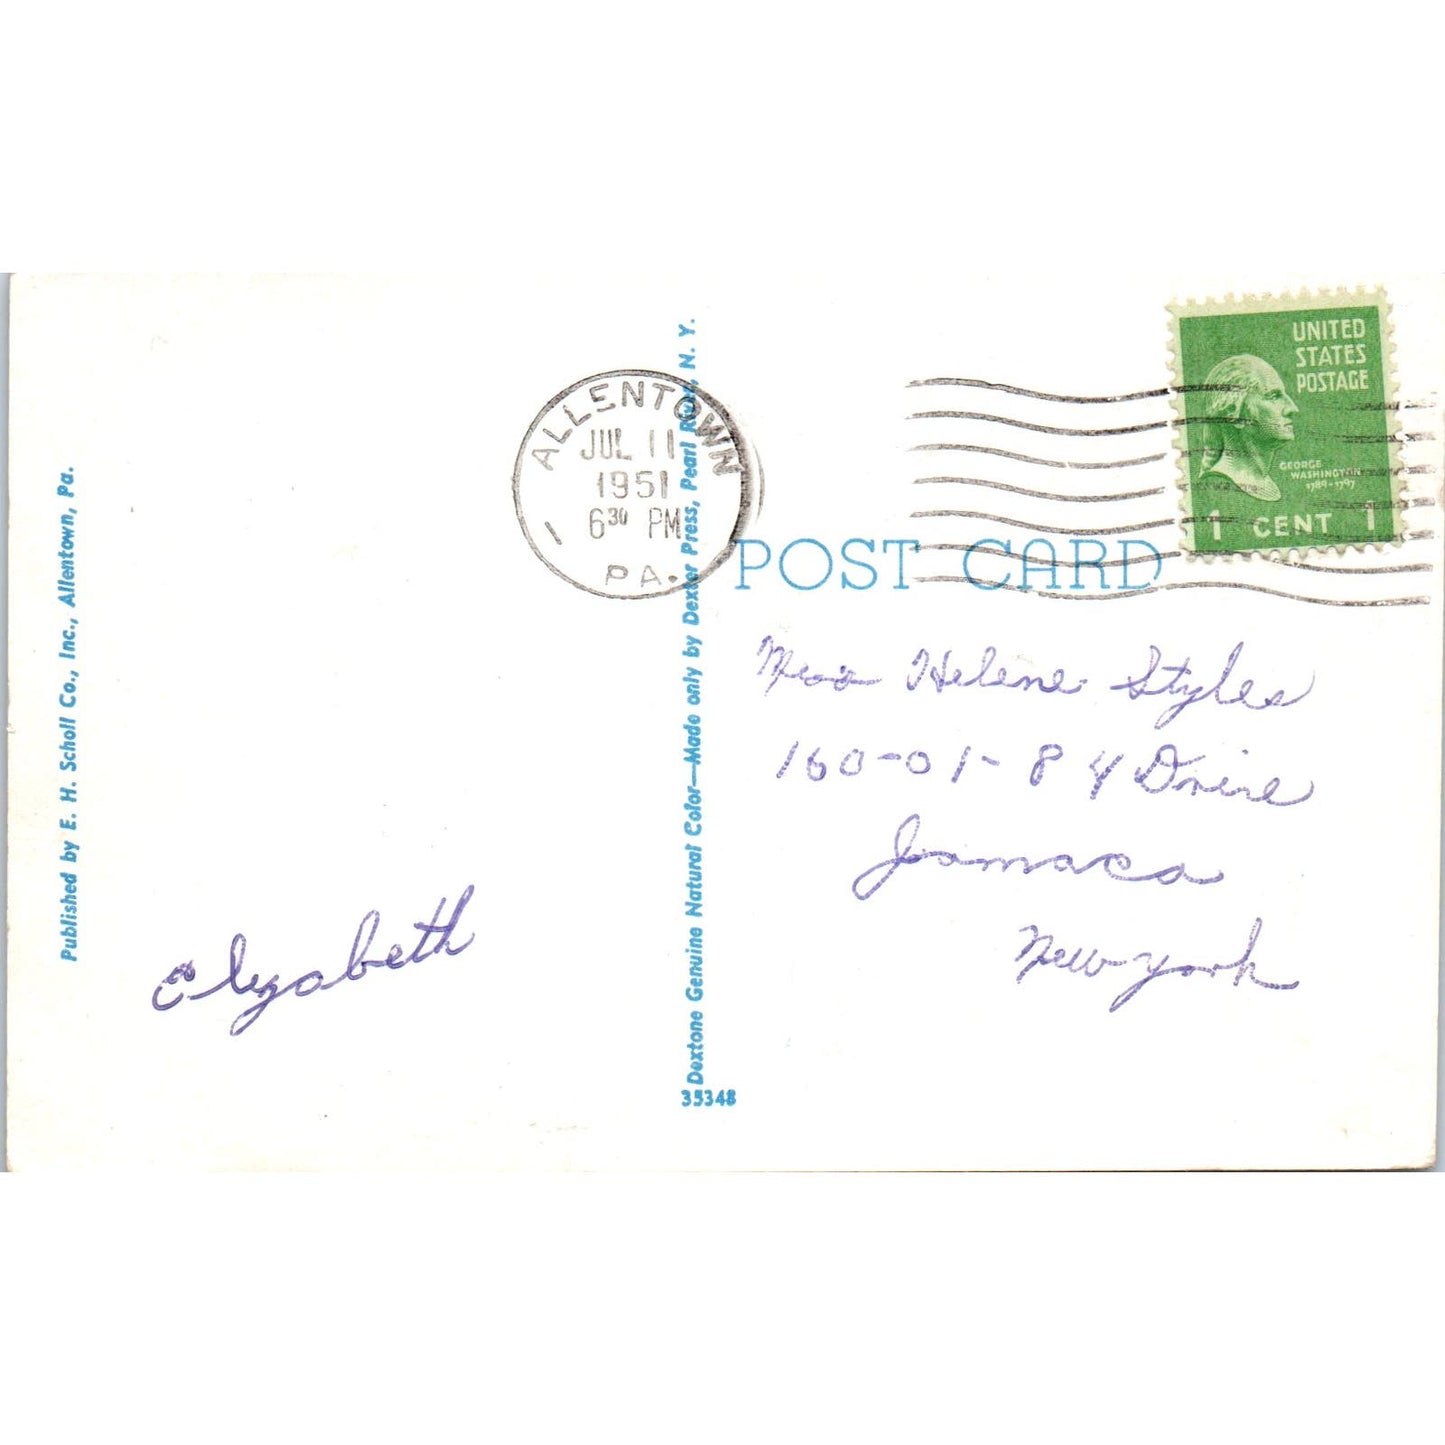 Published by E. H. Scholl Co., Inc., Allentown, Pa.
Elizabeth
Dextone Genuine Natural Color—Made only by Dexter Press, Pearl River, N. Y.
35348
ALLENTOWN
JUL 11
1951
6 30 PM
1
PA.
UNITED
STATES
POSTAGE
GEORGE
WASHINGTON
1789-1797
1 CENT 1
POST CARD
Miss Helene Styles
160-01-84 Drive
Jamaca
New York